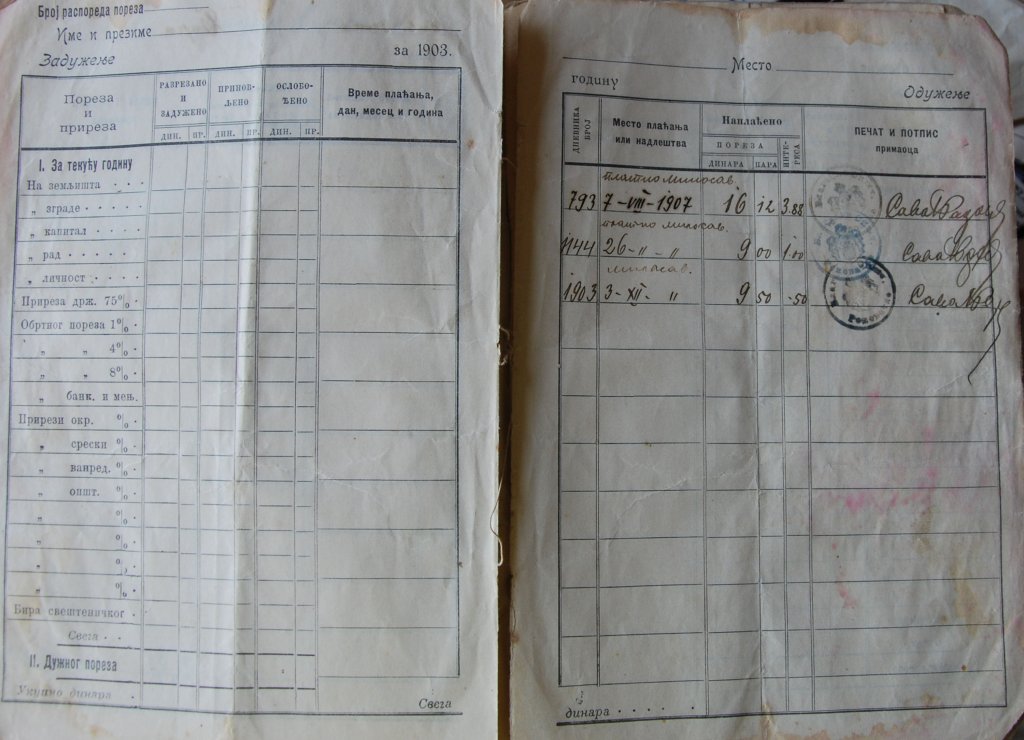 Број распореда пореза
Име и презиме
Задужење
за 1903.
Пореза и приреза
РАЗРЕЗАНО И ЗАДУЖЕНО
ПРИНОВ-ЉЕНО
ОСЛОБО-ЂЕНО
Време плаћања, дан, месец и година
ДИН. ПР. ДИН. ПР. ДИН. ПР.
I. За текућу годину
На земљишта · · ·
„ зграде · · · · ·
„ капитал · · · ·
„ рад · · · · ·
„ личност · · · ·
Приреза држ. 75% ·
Обртног пореза 1% ·
„ „ 4% ·
„ „ 8% ·
„ банк. и мењ.
Прирези окр. % ·
„ срески % ·
„ ванред. % ·
„ општ. % ·
„ % ·
„ % ·
„ % ·
„ % ·
Бира свештеничког ·
Свега · ·
II. Дужног пореза
Укупно динара ·
Свега
Место
годину
Одужење
ДНЕВНИКА БРОЈ
Место плаћања или надлештва
Наплаћено
ПОРЕЗА
ДИНАРА ПАРА
ИНТЕ-РЕСА
ПЕЧАТ И ПОТПИС примаоца
платио Милосав.
793 7-VIII-1907 16 12 3.88 Сава
платио Милосав.
1144 26-„ „ 9 00 1.00 Сава
Милосав.
1903 3-XII- „ 9 50 -50 Сава
динара · · · · ·